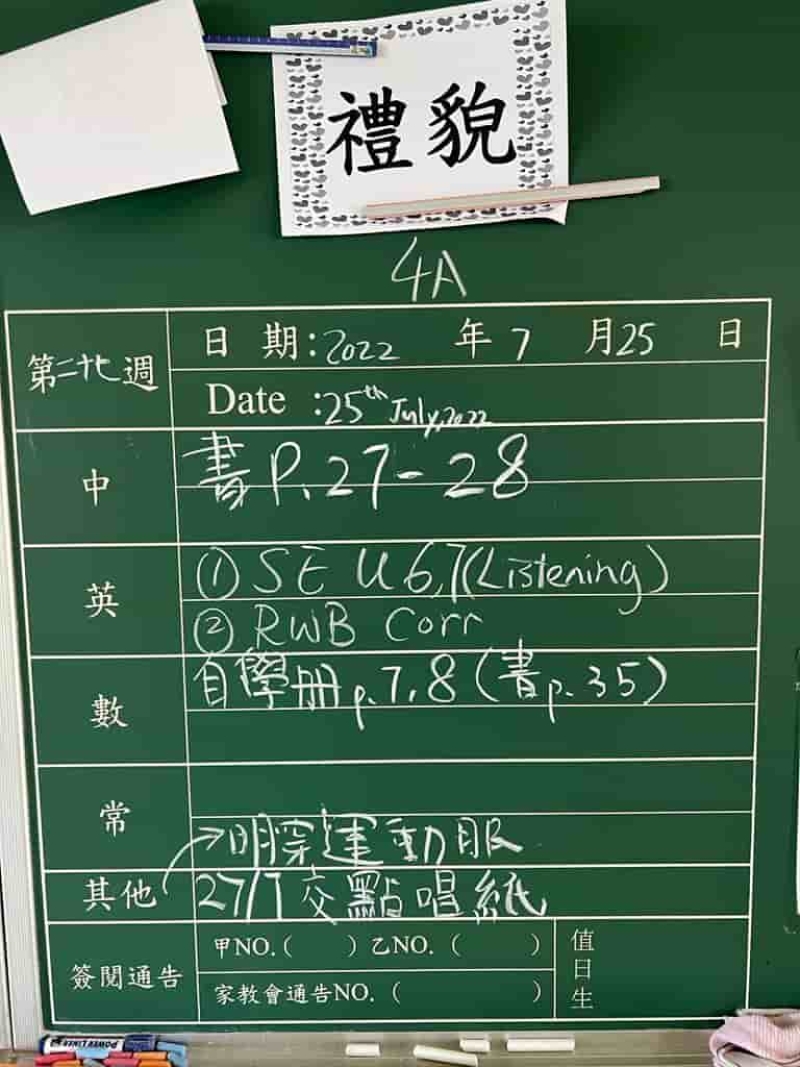 禮貌
4A
第二十七週
日 期:2022 年 7 月25 日
Date :25th July,2022
中
書 P.27-28
英
① SE U6,7(Listening)
② RWB Corr
數
自學册 p.7,8 (書p.35)
常
→明穿運動服
其他
27/7 交點唱紙
簽閱通告
甲NO.( ) 乙NO.( )
家教會通告NO.( )
值日生
POWER LINER